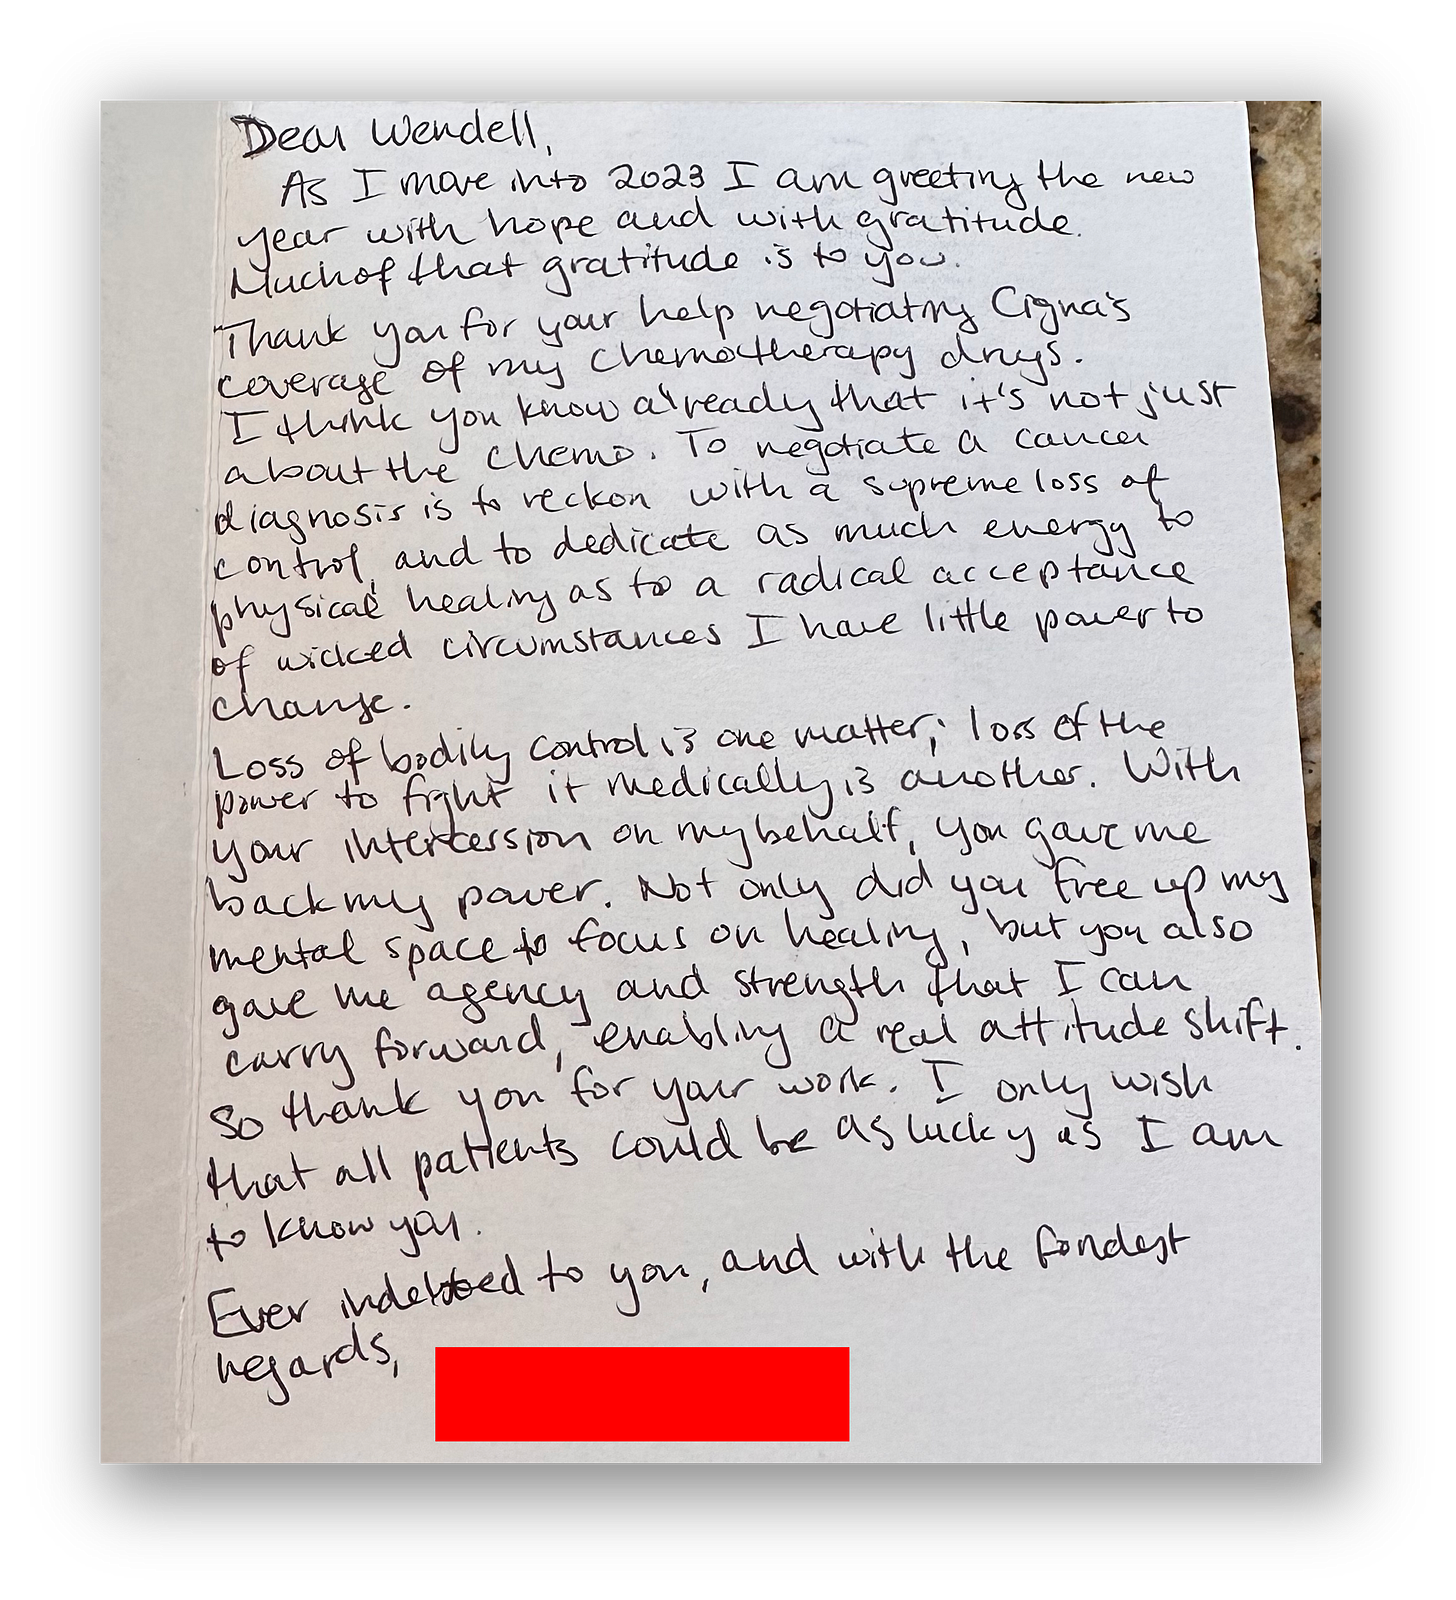 Dear Wendell,
As I move into 2023 I am greeting the new
year with hope and with gratitude.
Much of that gratitude is to you.
Thank you for your help negotiating Cigna's
coverage of my chemotherapy drugs.
I think you know already that it's not just
about the chemo. To negotiate a cancer
diagnosis is to reckon with a supreme loss of
control, and to dedicate as much energy to
physical healing as to a radical acceptance
of wicked circumstances I have little power to
change.
Loss of bodily control is one matter; loss of the
power to fight it medically is another. With
your intercession on my behalf, you gave me
back my power. Not only did you free up my
mental space to focus on healing, but you also
gave me agency and strength that I can
carry forward, enabling a real attitude shift.
So thank you for your work. I only wish
that all patients could be as lucky as I am
to know you.
Ever indebted to you, and with the fondest
regards,